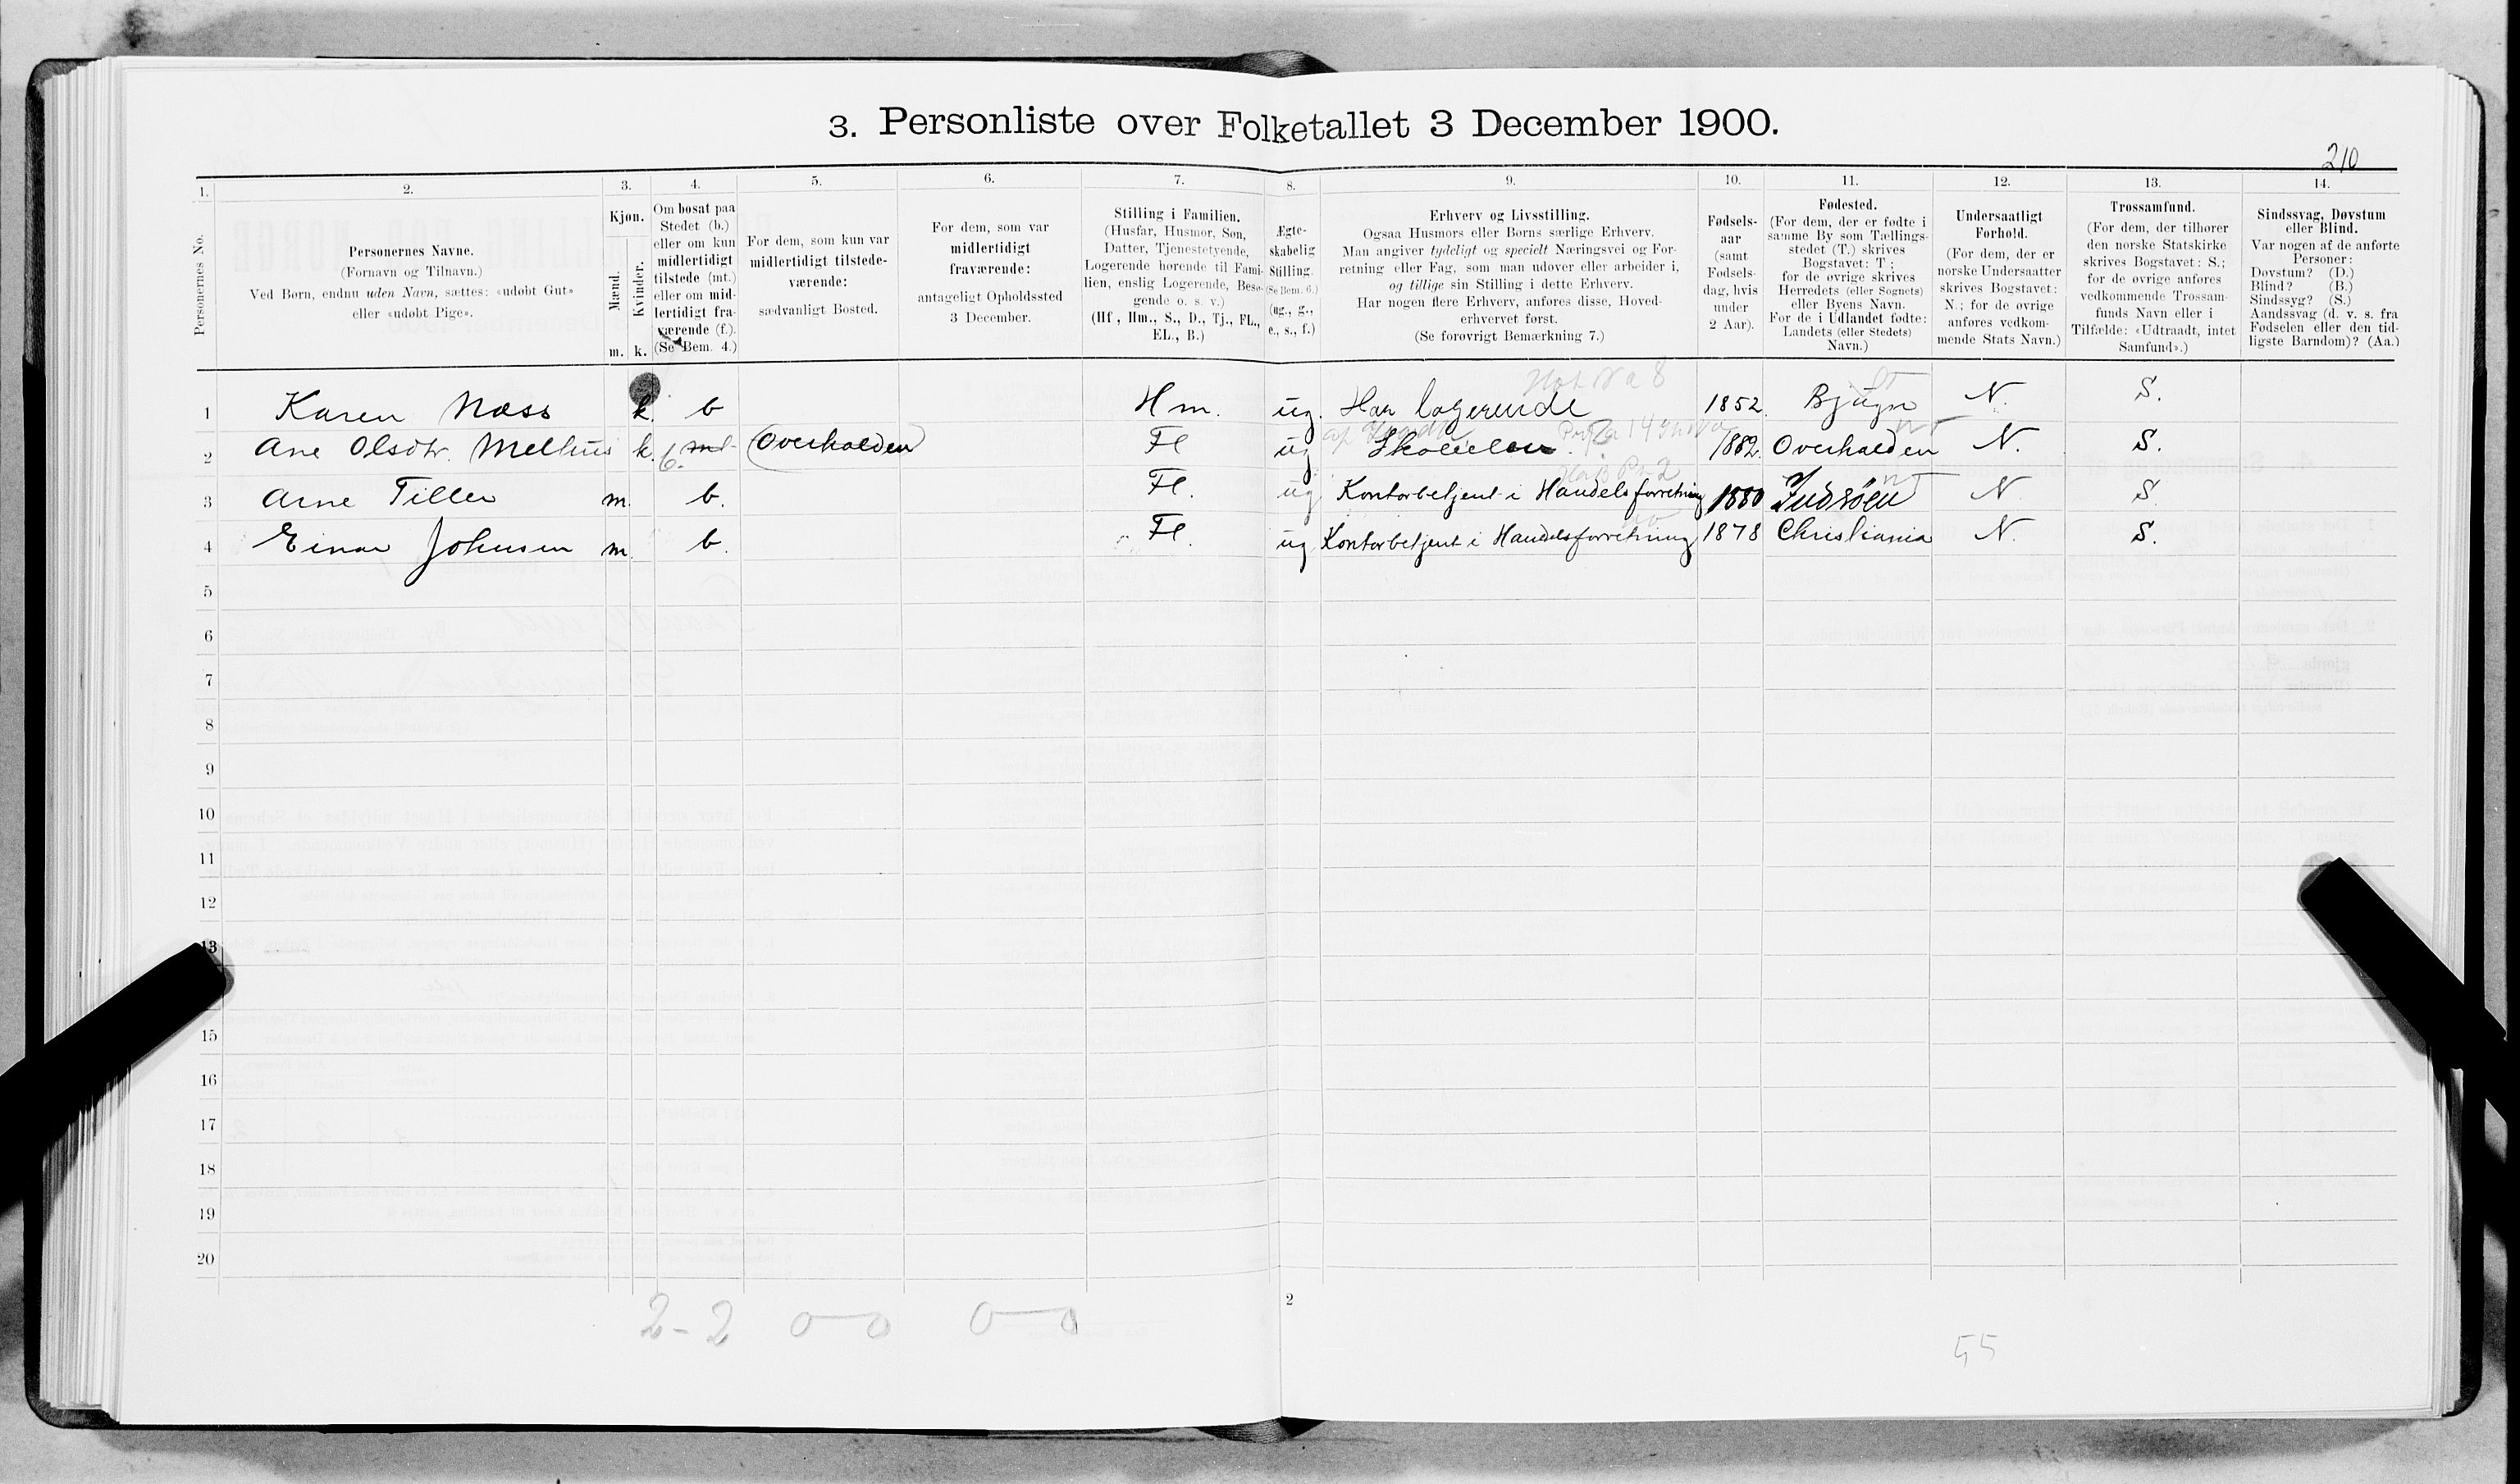 3. Personliste over Folketallet 3 December 1900.
210
1. 2. 3. 4. 5. 6. 7. 8. 9. 10. 11. 12. 13. 14.
Personernes No.
Personernes Navne.
(Fornavn og Tilnavn.)
Ved Børn, endnu uden Navn, sættes: «udøbt Gut»
eller «udøbt Pige».
Kjøn.
Mænd.
Kvinder.
m. k.
Om bosat paa
Stedet (b.)
eller om kun
midlertidigt
tilstede (mt.)
eller om mid-
lertidigt fra-
værende (f.).
(Se Bem. 4.)
For dem, som kun var
midlertidigt tilstede-
værende:
sædvanligt Bosted.
For dem, som var
midlertidigt
fraværende:
antageligt Opholdssted
3 December.
Stilling i Familien.
(Husfar, Husmor, Søn,
Datter, Tjenestetyende,
Logerende hørende til Fami-
lien, enslig Logerende, Besø-
gende o. s. v.)
(Hf., Hm., S., D., Tj., FL.,
EL., B.)
Ægte-
skabelig
Stilling.
(Se Bem. 6.)
(ug., g.,
e., s., f.)
Erhverv og Livsstilling.
Ogsaa Husmors eller Børns særlige Erhverv.
Man angiver tydeligt og specielt Næringsvei og For-
retning eller Fag, som man udøver eller arbeider i,
og tillige sin Stilling i dette Erhverv.
Har nogen flere Erhverv, anføres disse, Hoved-
erhvervet først.
(Se forøvrigt Bemærkning 7.)
Fødsels-
aar
(samt
Fødsels-
dag, hvis
under
2 Aar).
Fødested.
(For dem, der er fødte i
samme By som Tællings-
stedet (T.) skrives
Bogstavet: T;
for de øvrige skrives
Herredets (eller Sognets)
eller Byens Navn.
For de i Udlandet fødte:
Landets (eller Stedets)
Navn.)
Undersaatligt
Forhold.
(For dem, der er
norske Undersaatter
skrives Bogstavet:
N.; for de øvrige
anføres vedkom-
mende Stats Navn.)
Trossamfund.
(For dem, der tilhører
den norske Statskirke
skrives Bogstavet: S.;
for de øvrige anføres
vedkommende Trossam-
funds Navn eller i
Tilfælde: «Udtraadt, intet
Samfund».)
Sindssvag, Døvstum
eller Blind.
Var nogen af de anførte
Personer:
Døvstum? (D.)
Blind? (B.)
Sindssyg? (S.)
Aandssvag (d. v. s. fra
Fødselen eller den tid-
ligste Barndom)? (Aa.)
1 Karen Næss k. b Hm. ug. Har logerende 1852. Bjugn N. S.
2 Ane Olsdtr. Melhus k. b. mt (Overhalden) Fl ug 1882. Overhalden N. S.
3 Arne Tiller m. b. Fl. ug Kontorbetjent i Handelsforretning 1880 Inderøen N S
4 Einar Johnsen m. b. Fl. ug Kontorbetjent i Handelsforretning 1878 Christiania N. S.
5
6
7
8
9
10
11
12
13
15
16
17
18
19
20
2-2 0-0 0-0
2
55